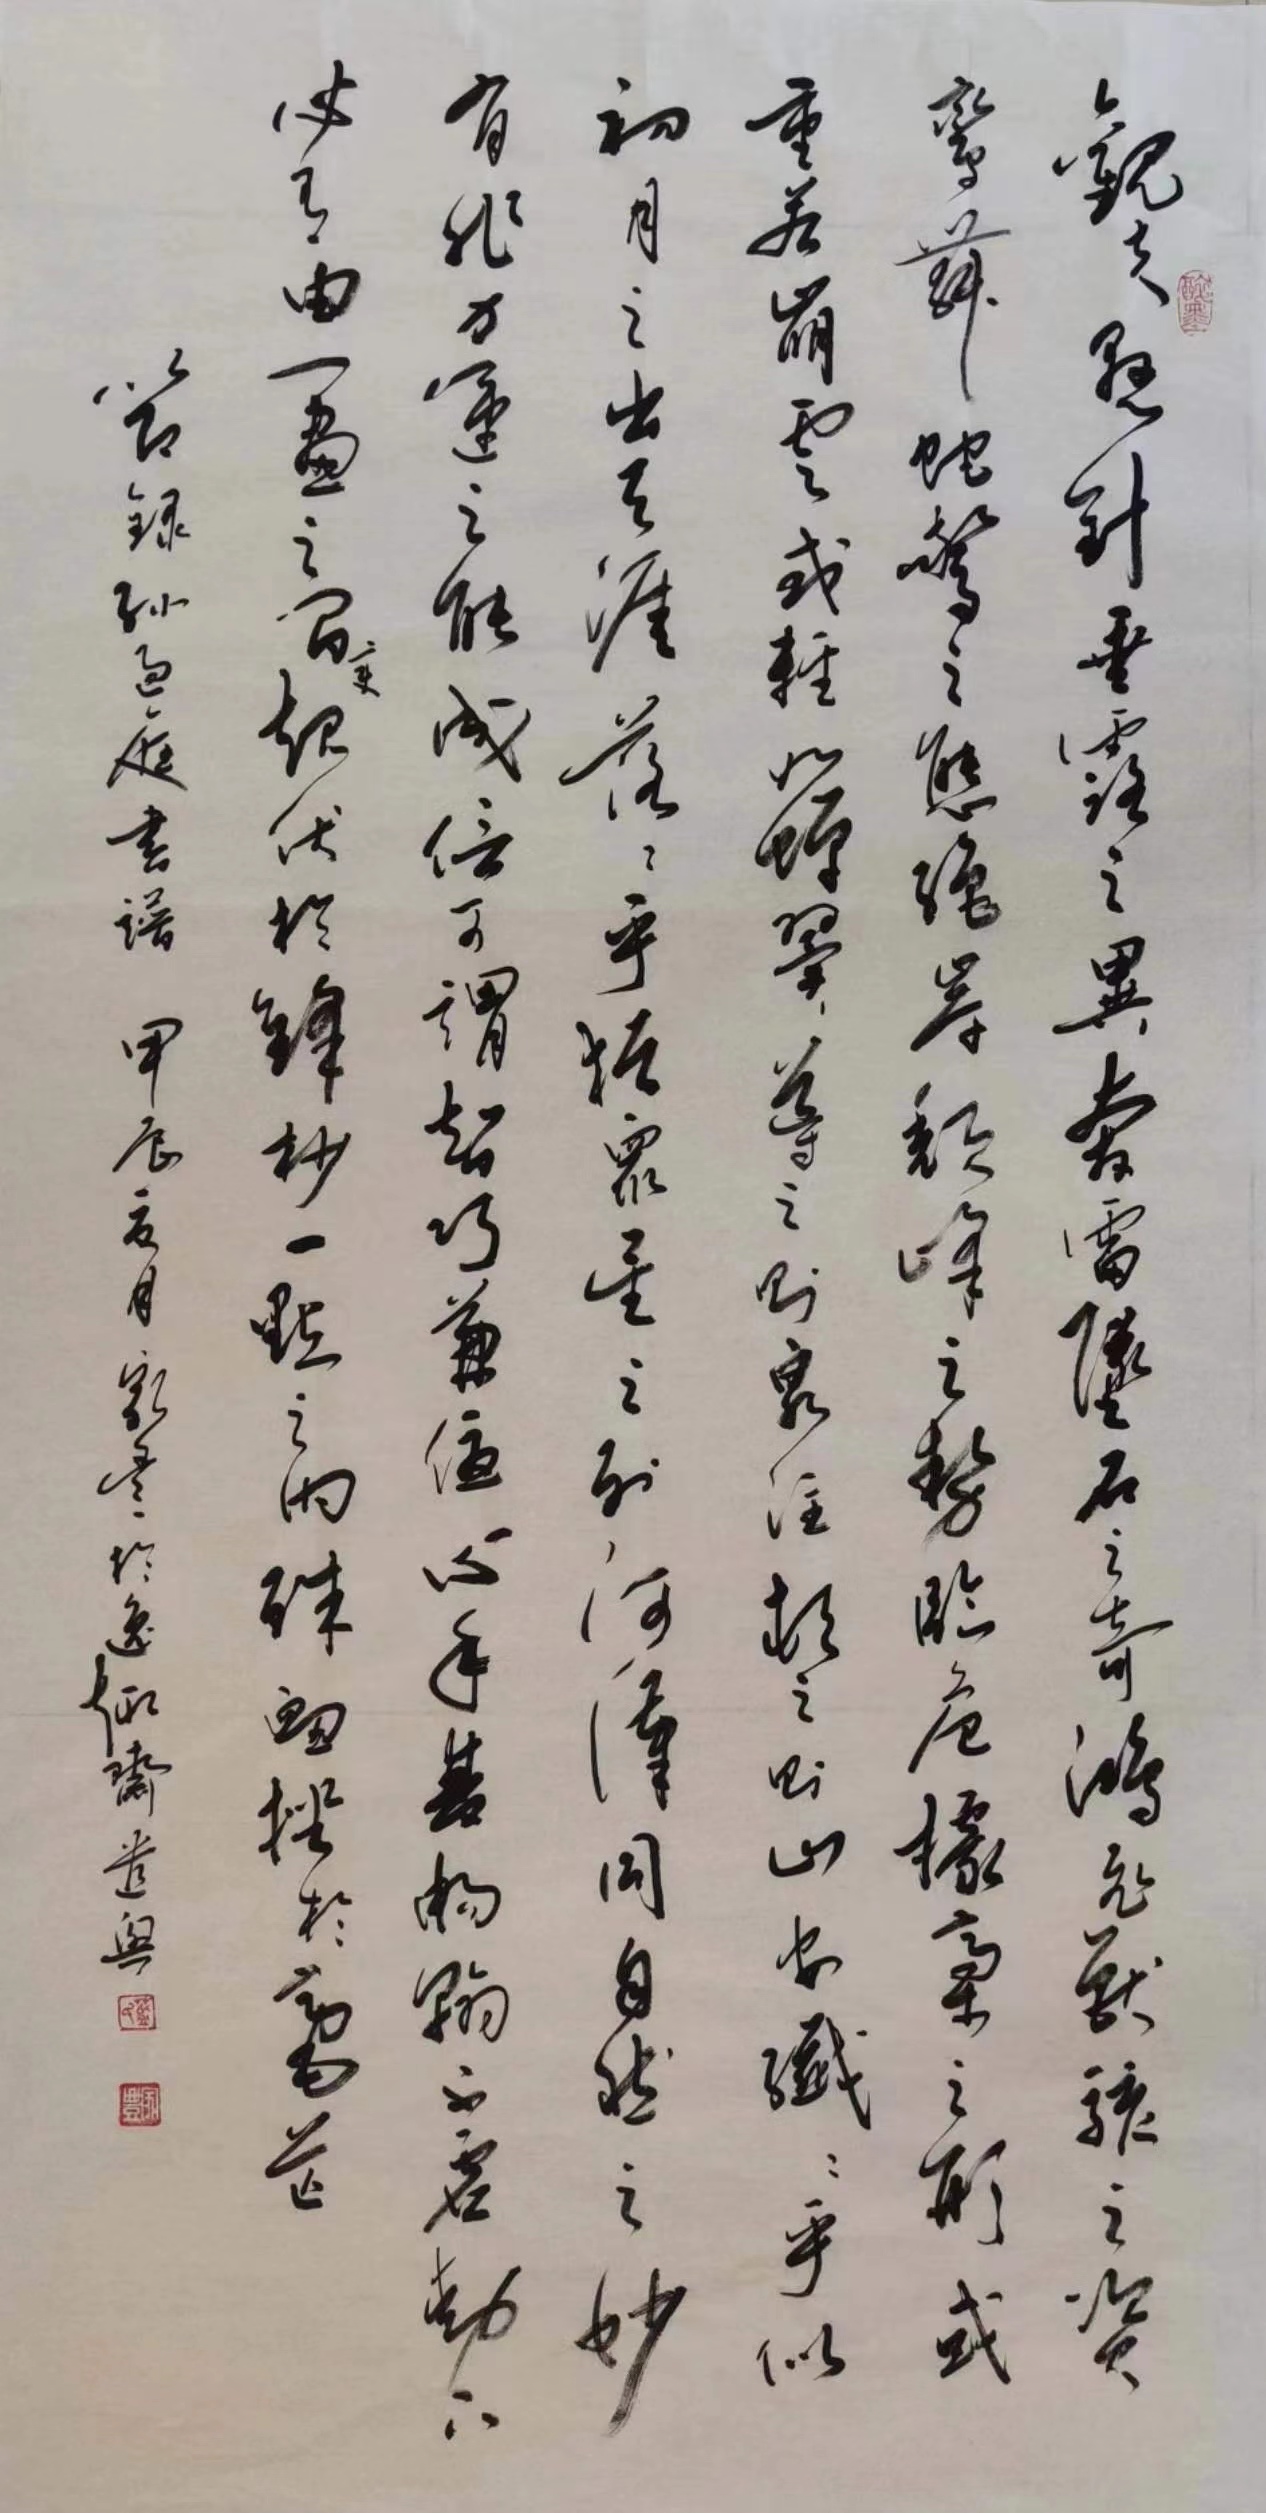 觀夫懸針垂露之異奔雷墜石之奇鴻飛獸駭之資
鸞舞蛇驚之態絕岸頹峰之勢臨危據槁之形或
重若崩雲或輕如蟬翼導之則泉注頓之則山安纖〻乎似
初月之出天涯落〻乎猶眾星之列河漢同自然之妙
有非力運之能成信可謂智巧兼優心手雙暢翰不虛動下
必有由一畫之間變起伏於鋒杪一點之內殊衄挫於毫芒
節錄孫過庭書譜 甲辰夏月 家豊於逸趣齋遣興